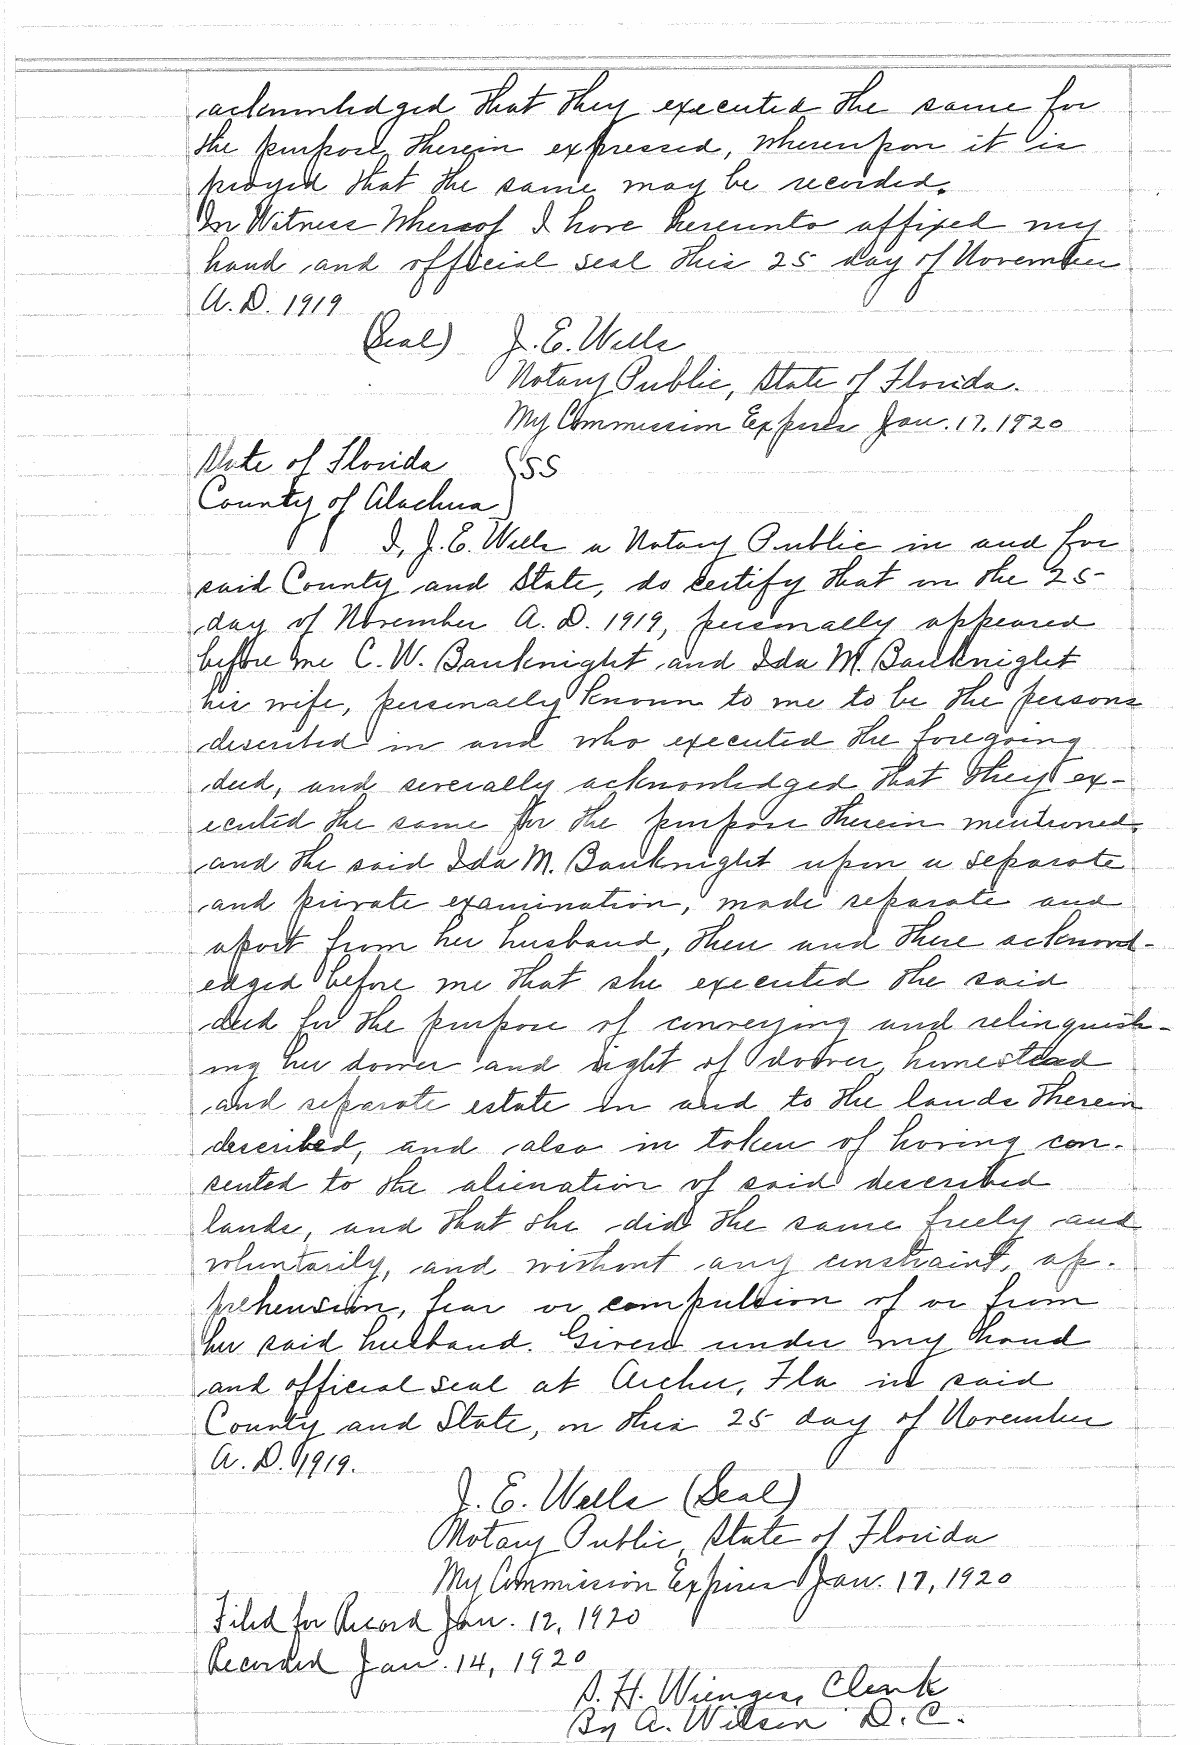 acknowledged that they executed the same for
the purpose therein expressed, whereupon it is
prayed that the same may be recorded.
In Witness Whereof I have hereunto affixed my
hand and official seal this 25 day of November
A. D. 1919
(Seal) J. E. Wells
Notary Public, State of Florida.
My Commission Expires Jan. 17, 1920
State of Florida } SS
County of Alachua
I, J. E. Wells a Notary Public in and for
said County and State, do certify that on the 25
day of November A. D. 1919, personally appeared
before me C. W. Bauknight and Ida M. Bauknight
his wife, personally known to me to be the persons
described in and who executed the foregoing
deed, and severally acknowledged that they ex-
ecuted the same for the purpose therein mentioned,
and the said Ida M. Bauknight upon a separate
and private examination, made separate and
apart from her husband, then and there acknowl-
edged before me that she executed the said
deed for the purpose of conveying and relinquish-
ing her dower and right of dower, homestead
and separate estate in and to the lands therein
described, and also in token of having con-
sented to the alienation of said described
lands, and that she did the same freely and
voluntarily, and without any constraint, ap-
prehension, fear or compulsion of or from
her said husband. Given under my hand
and official seal at Archer, Fla in said
County and State, on this 25 day of November
A. D. 1919.
J. E. Wells (Seal)
Notary Public, State of Florida
My Commission Expires Jan. 17, 1920
Filed for Record Jan. 12, 1920
Recorded Jan. 14, 1920
S. H. Wienges, Clerk
By A. Wilson D. C.